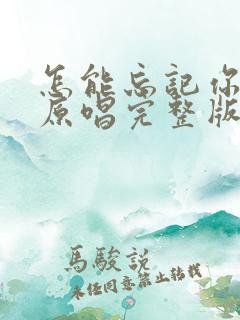 怎能忘记你
原唱完整版
馬駿説
未经同意禁止转载